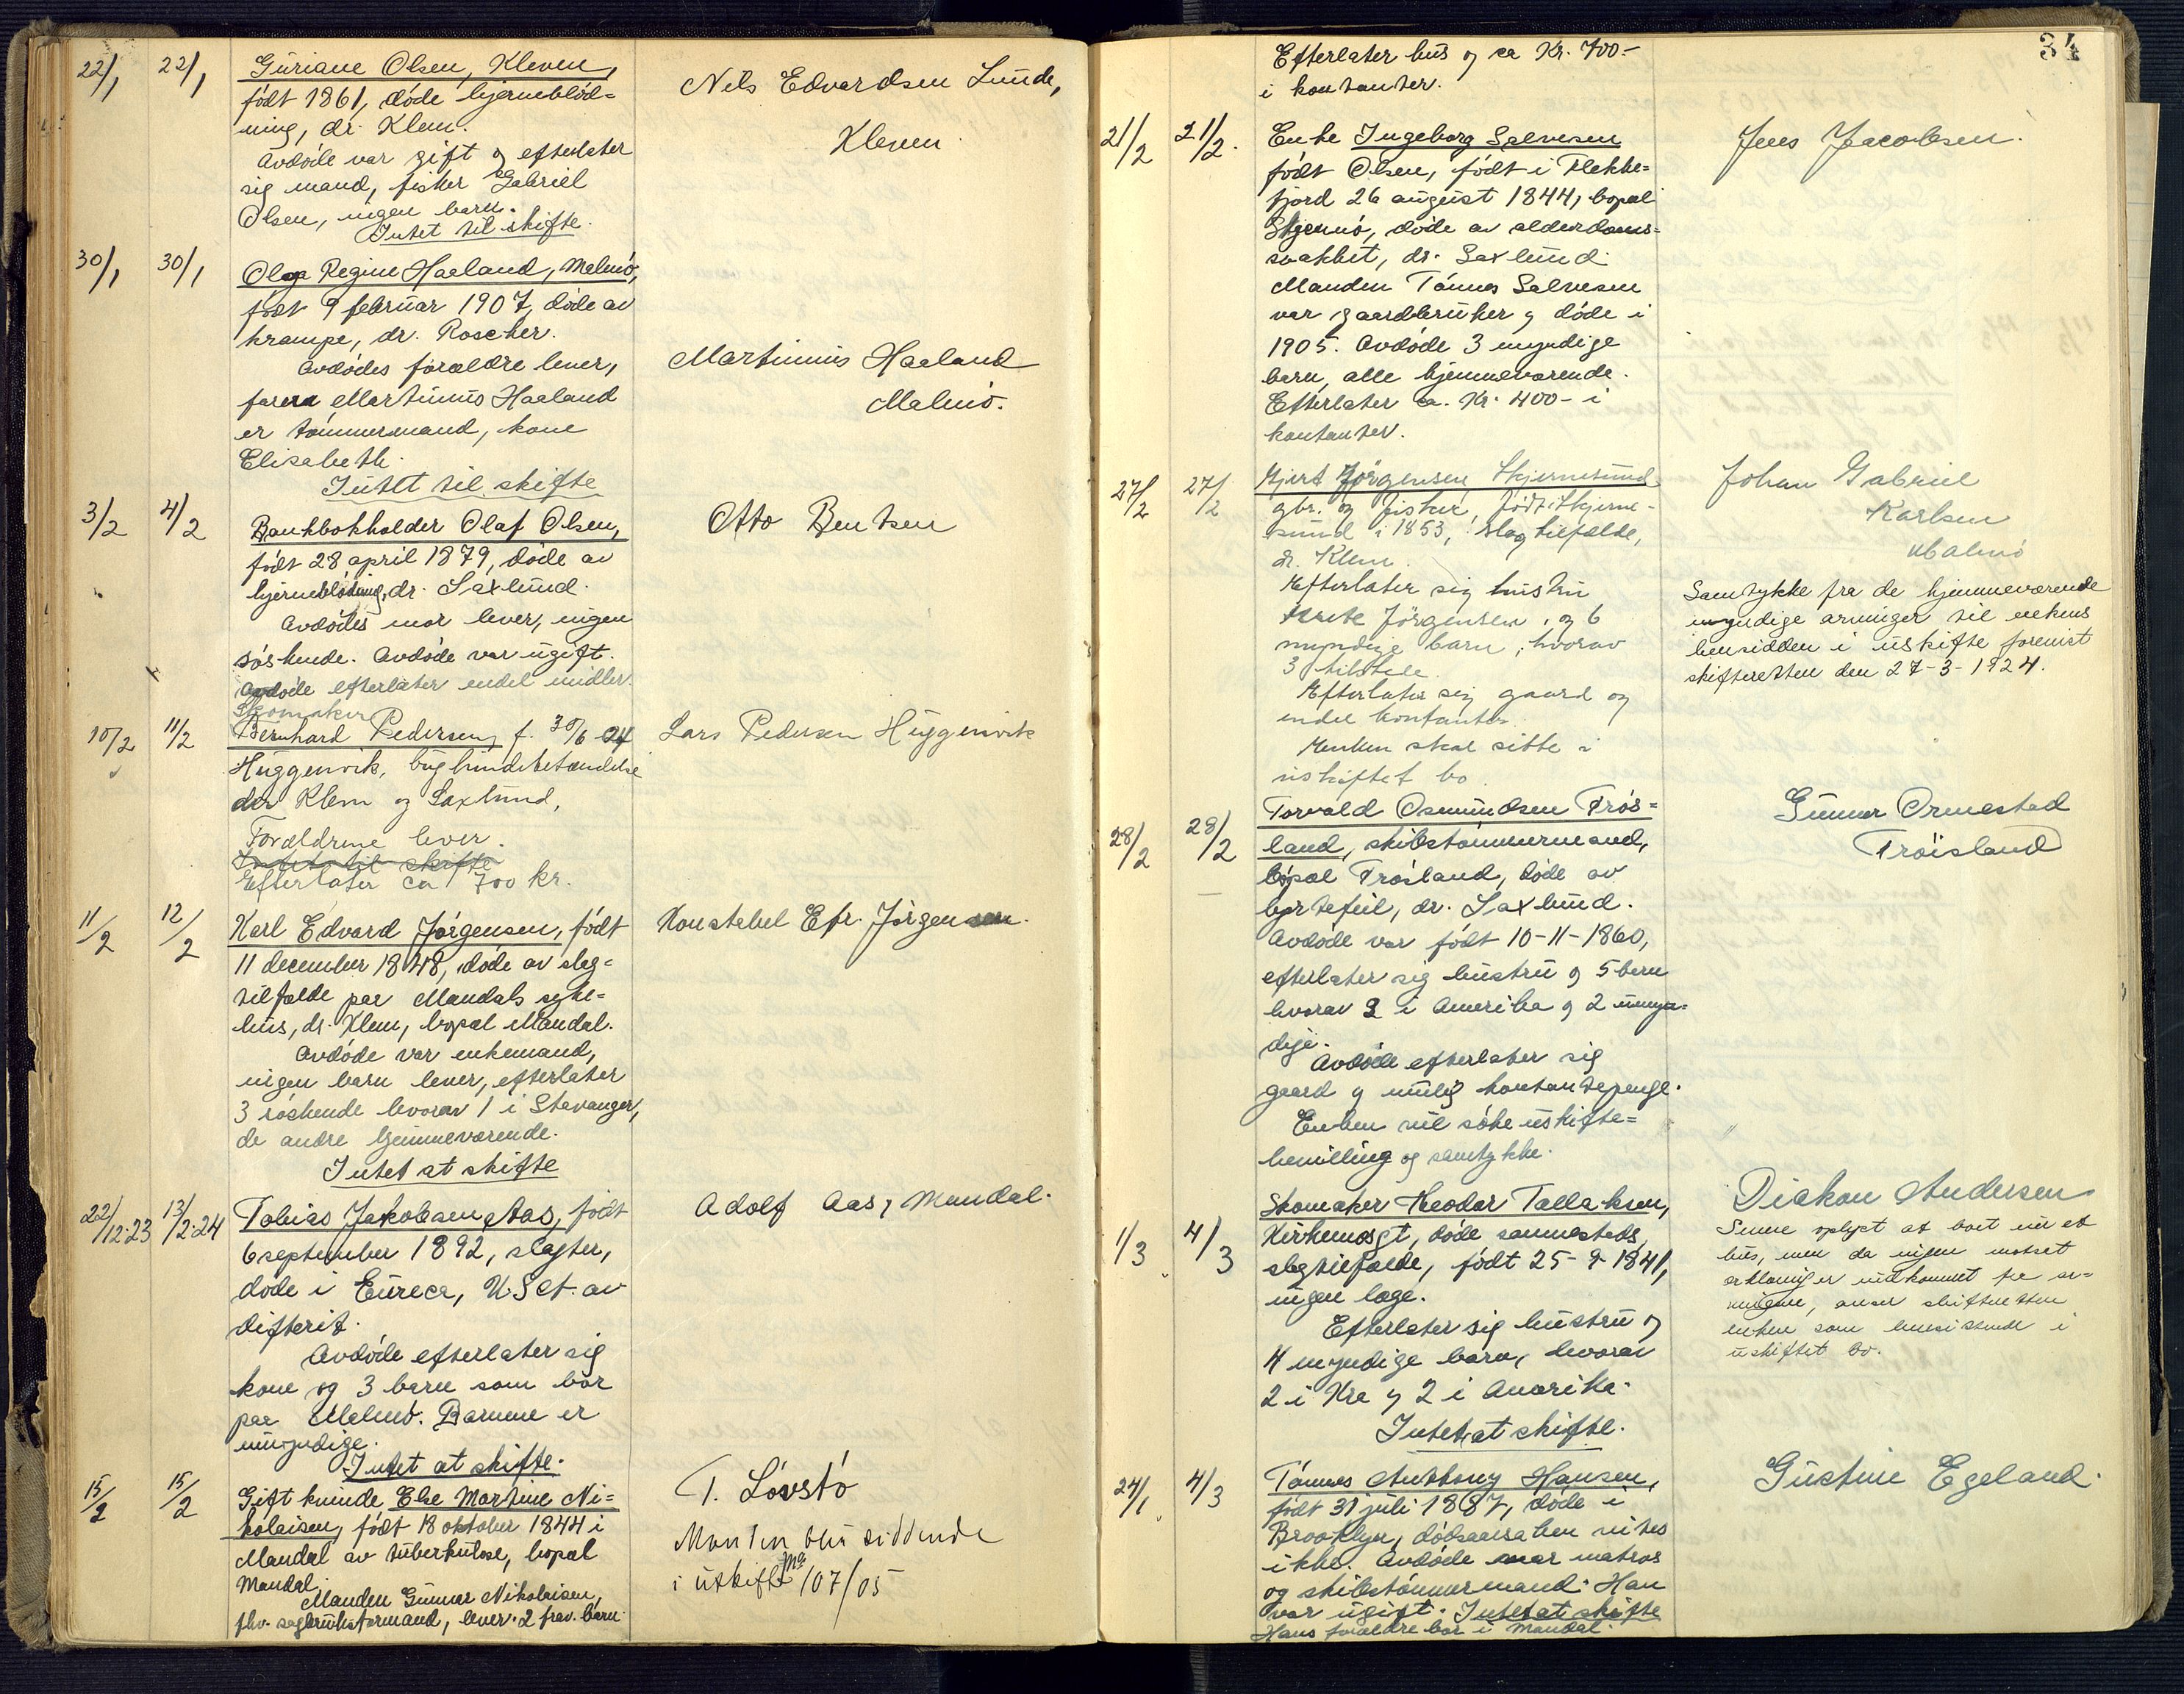 22/1 22/1 Guriane Olsen, Kleven,
født 1861, døde hjerneblød=
ning, dr. Klem.
Avdøde var gift og efterlater
sig mand, fisker Gabriel
Olsen, ingen barn.
Intet til skifte.
Nils Edvardsen Lunde,
Kleven.
30/1 30/1 Olga Regine Haaland, Malmø,
født 9 februar 1907, døde av
krampe, dr. Roscher.
Avdødes forældre lever,
faren Martinius Haaland
er tømmermand, kone
Elisabeth.
Intet til skifte
Martinius Haaland
Malmø.
3/2 4/2 Bankbokholder Olaf Olsen,
født 28 april 1879, døde av
hjerneblødning, dr. Saxlund.
Avdødes mor lever, ingen
søskende. Avdøde var ugift.
Avdøde efterlater endel midler.
Otto Bentsen
Skomaker
10/2 11/2 Bernhard Pedersen, f. 30/6-04
Huggenvik, bughindebetændelse
dr Klem og Saxlund,
Forældrene lever.
Intet til skifte
Efterlater ca 700 kr.
Lars Pedersen Huggenvik
11/2 12/2 Karl Edvard Jørgensen, født
11 december 1848, døde av slag=
tilfælde paa Mandals syke=
hus, dr. Klem, bopæl Mandal.
Avdøde var enkemand,
ingen barn lever, efterlater
3 søskende hvorav 1 i Stavanger,
de andre hjemmeværende.
Intet at skifte
Konstabel Efr. Jørgensen.
22/12-23 13/2-24 Tobias Jakobsen Aas, født
6 september 1892, slagter,
døde i Eureca, USA. av
difterit.
Avdøde efterlater sig
kone og 3 barn som bor
paa Malmø. Barnene er
umyndige.
Intet at skifte.
Adolf Aas, Mandal.
15/2 15/2 Gift kvinde Else Martine Ni=
kolaisen, født 18 oktober 1844 i
Mandal av tuberkulose, bopæl
Mandal.
Manden Gunnar Nikolaisen,
fhv. sagbruksformand, lever. 2 frav. barn.
T. Løvstø
Manden blir siddende
i uskifte 107/05
34
Efterlater hus og ca Kr. 700-
i kontanter.
21/2 21/2. Enke Ingeborg Salvesen
født Olsen, født i Flekke=
fjord 26 august 1844, bopæl
Skjernø, døde av alderdoms=
svakhet, dr. Saxlund.
Manden Tønnes Salvesen
var gaardbruker og døde i
1905. Avdøde 3 myndige
barn, alle hjemmeværende.
Efterlater ca. Kr. 400- i
kontanter.
Jens Jacobsen.
27/2 27/2 Gjert Jørgensen Skjernesund
gbr. og fisker, født i Skjerne-
sund i 1853, slagtilfælde,
dr. Klem.
Efterlater sig hustru
Jørgensen, og 6
myndige barn, hvorav
3 tilstede.
Efterlater sig gaard og
endel kontanter.
Enken skal sitte i
uskiftet bo.
Johan Gabriel
Karlsen
Malmø
Samtykke fra de hjemmeværende
myndige arvinger til enkens
hensidden i uskifte forevist
skifteretten den 27-3-1924.
28/2 28/2 Torvald Osmundsen Frøs=
land, skibstømmermand,
bopæl Frøsland, døde av
hjertefeil, dr. Saxlund.
Avdøde var født 10-11-1860,
efterlater sig hustru og 5 barn
hvorav 2 i Amerika og 2 umyn=
dige.
Avdøde efterlater sig
gaard og mulig kontantepenge.
Enken vil søke uskifte=
bevilling og samtykke.
Gunnar Ormestad
Frøisland
1/3 4/3 Skomaker Theodor Tallaksen,
Kirkemoegt, døde sammesteds,
slagtilfælde, født 25-9-1841,
ingen læge.
Efterlater sig hustru og
4 myndige barn, hvorav
2 i Kra og 2 i Amerika.
Intet at skifte.
Diakon Andersen
Senere oplyst at boet eier et
hus, men da ingen motsat
erklæring er indkommet fra ar=
vingene, anser skifteretten
enken som hensittende i
uskiftet bo.
24/1 4/3 Tønnes Anthony Hansen,
født 31 juli 1887, døde i
Brooklyn, dødsaarsaken vites
ikke. Avdøde var matros
og skibstømmermand. Han
var ugift. Intet at skifte
Hans forældre bor i Mandal.
Gustine Egeland.